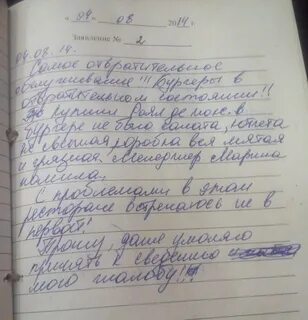 « 04 » 08 2014 г.
Заявление № 2
04.08.14.
Самое отвратительное
обслуживание!!! Бургеры в
отвратительном состоянии!!
купили Роял де люкс. в
бургере не было салата,
коробка вся мятая
и грязная. Менеджер Марина
хамила.
С проблемами в этом
ресторане встречаюсь не в
первой!
Прошу, даже умоляю
принять к сведению
мою жалобу!!!